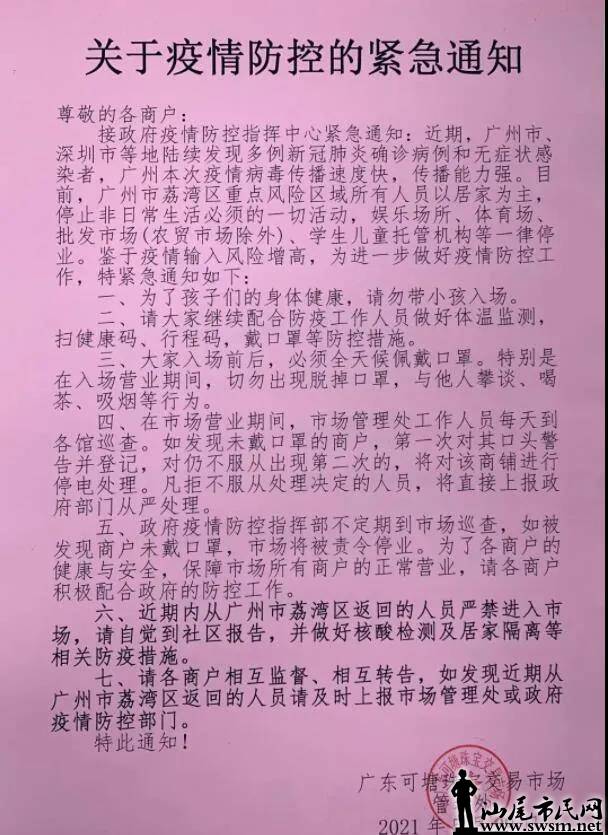 关于疫情防控的紧急通知
尊敬的各商户:
接政府疫情防控指挥中心紧急通知:近期,广州市、
深圳市等地陆续发现多例新冠肺炎确诊病例和无症状感
染者,广州本次疫情病毒传播速度快,传播能力强。目
前,广州市荔湾区重点风险区域所有人员以居家为主,
停止非日常生活必须的一切活动,娱乐场所、体育场、
批发市场(农贸市场除外)、学生儿童托管机构等一律停
业。鉴于疫情输入风险增高,为进一步做好疫情防控工
作,特紧急通知如下:
一、为了孩子们的身体健康,请勿带小孩入场。
二、请大家继续配合防疫工作人员做好体温监测,
扫健康码、行程码,戴口罩等防控措施。
三、大家入场前后,必须全天候佩戴口罩。特别是
在入场营业期间,切勿出现脱掉口罩,与他人攀谈、喝
茶、吸烟等行为。
四、在市场营业期间,市场管理处工作人员每天到
各馆巡查。如发现未戴口罩的商户,第一次对其口头警
告并登记,对仍不服从出现第二次的,将对该商铺进行
停电处理。凡拒不服从处理决定的人员,将直接上报政
府部门从严处理。
五、政府疫情防控指挥部不定期到市场巡查,如被
发现商户未戴口罩,市场将被责令停业。为了各商户的
健康与安全,保障市场所有商户的正常营业,请各商户
积极配合政府的防控工作。
六、近期内从广州市荔湾区返回的人员严禁进入市
场,请自觉到社区报告,并做好核酸检测及居家隔离等
相关防疫措施。
七、请各商户相互监督、相互转告,如发现近期从
广州市荔湾区返回的人员请及时上报市场管理处或政府
疫情防控部门。
特此通知!
广东可塘珠宝交易市场
管
2021年
汕尾市民网
www.swsm.net